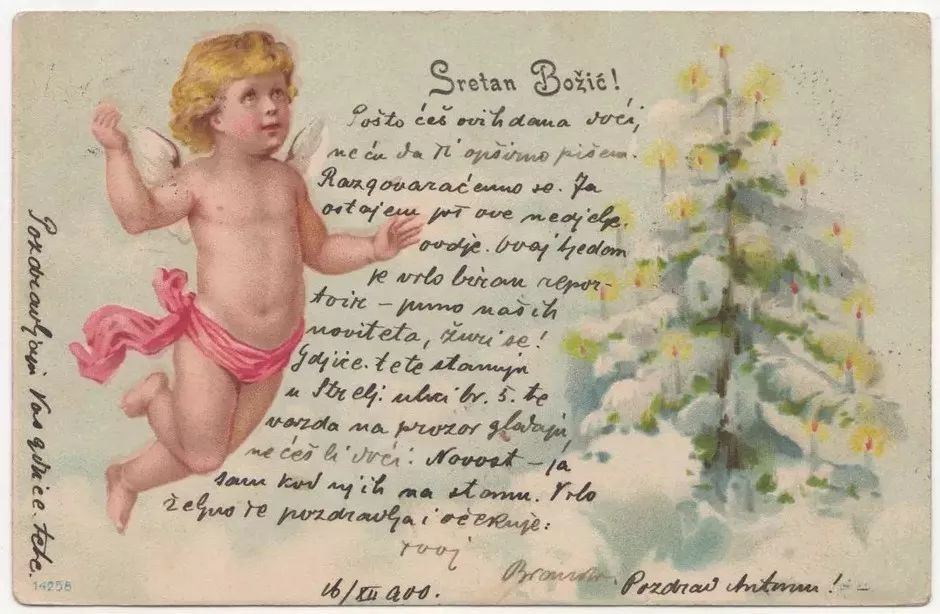 Sretan Božić!
Pošto ćeš ovih dana doći,
neću da ti opširno pišem.
Razgovaraćemo se. Ja
ostajem još ove nedjelje
ovdje. Ovaj tjedan
je vrlo biran repor-
toir – puno naših
noviteta, žuri se!
Gdjice. tete stanuju
u Strelj. ulici br. 5. te
vazda na prozor gledaju,
nećeš li doći. Novost – ja
sam kod njih na stanu. Vrlo
željno te pozdravlja i očekuje:
tvoj
16/XII 900.
Pozdrav
Pozdravljaju Vas gdjice. tete.
14256